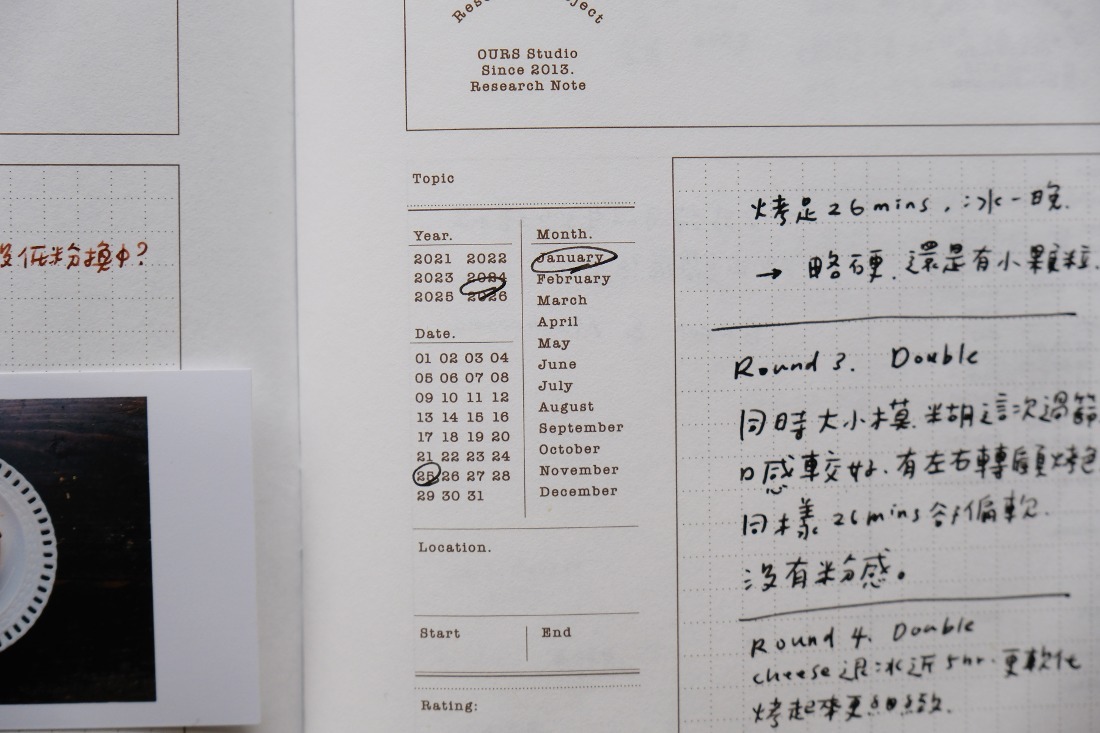 OURS Studio
Since 2013.
Research Note
没低粉換中?
Topic
Year.
2021 2022
2023 2024
2025 2026
Date.
01 02 03 04
05 06 07 08
09 10 11 12
13 14 15 16
17 18 19 20
21 22 23 24
25 26 27 28
29 30 31
Month.
January
February
March
April
May
June
July
August
September
October
November
December
Location.
Start
End
Rating:
烤足26mins,冰一晚.
→ 略硬.還是有小顆粒.
Round 3. Double
同時大小模.米胡這次過篩
口感較好.有左右轉頭烤色
同樣26mins卻偏軟.
沒有粉感。
Round 4. Double
cheese退冰近5hr.更軟化
烤起來更細緻.